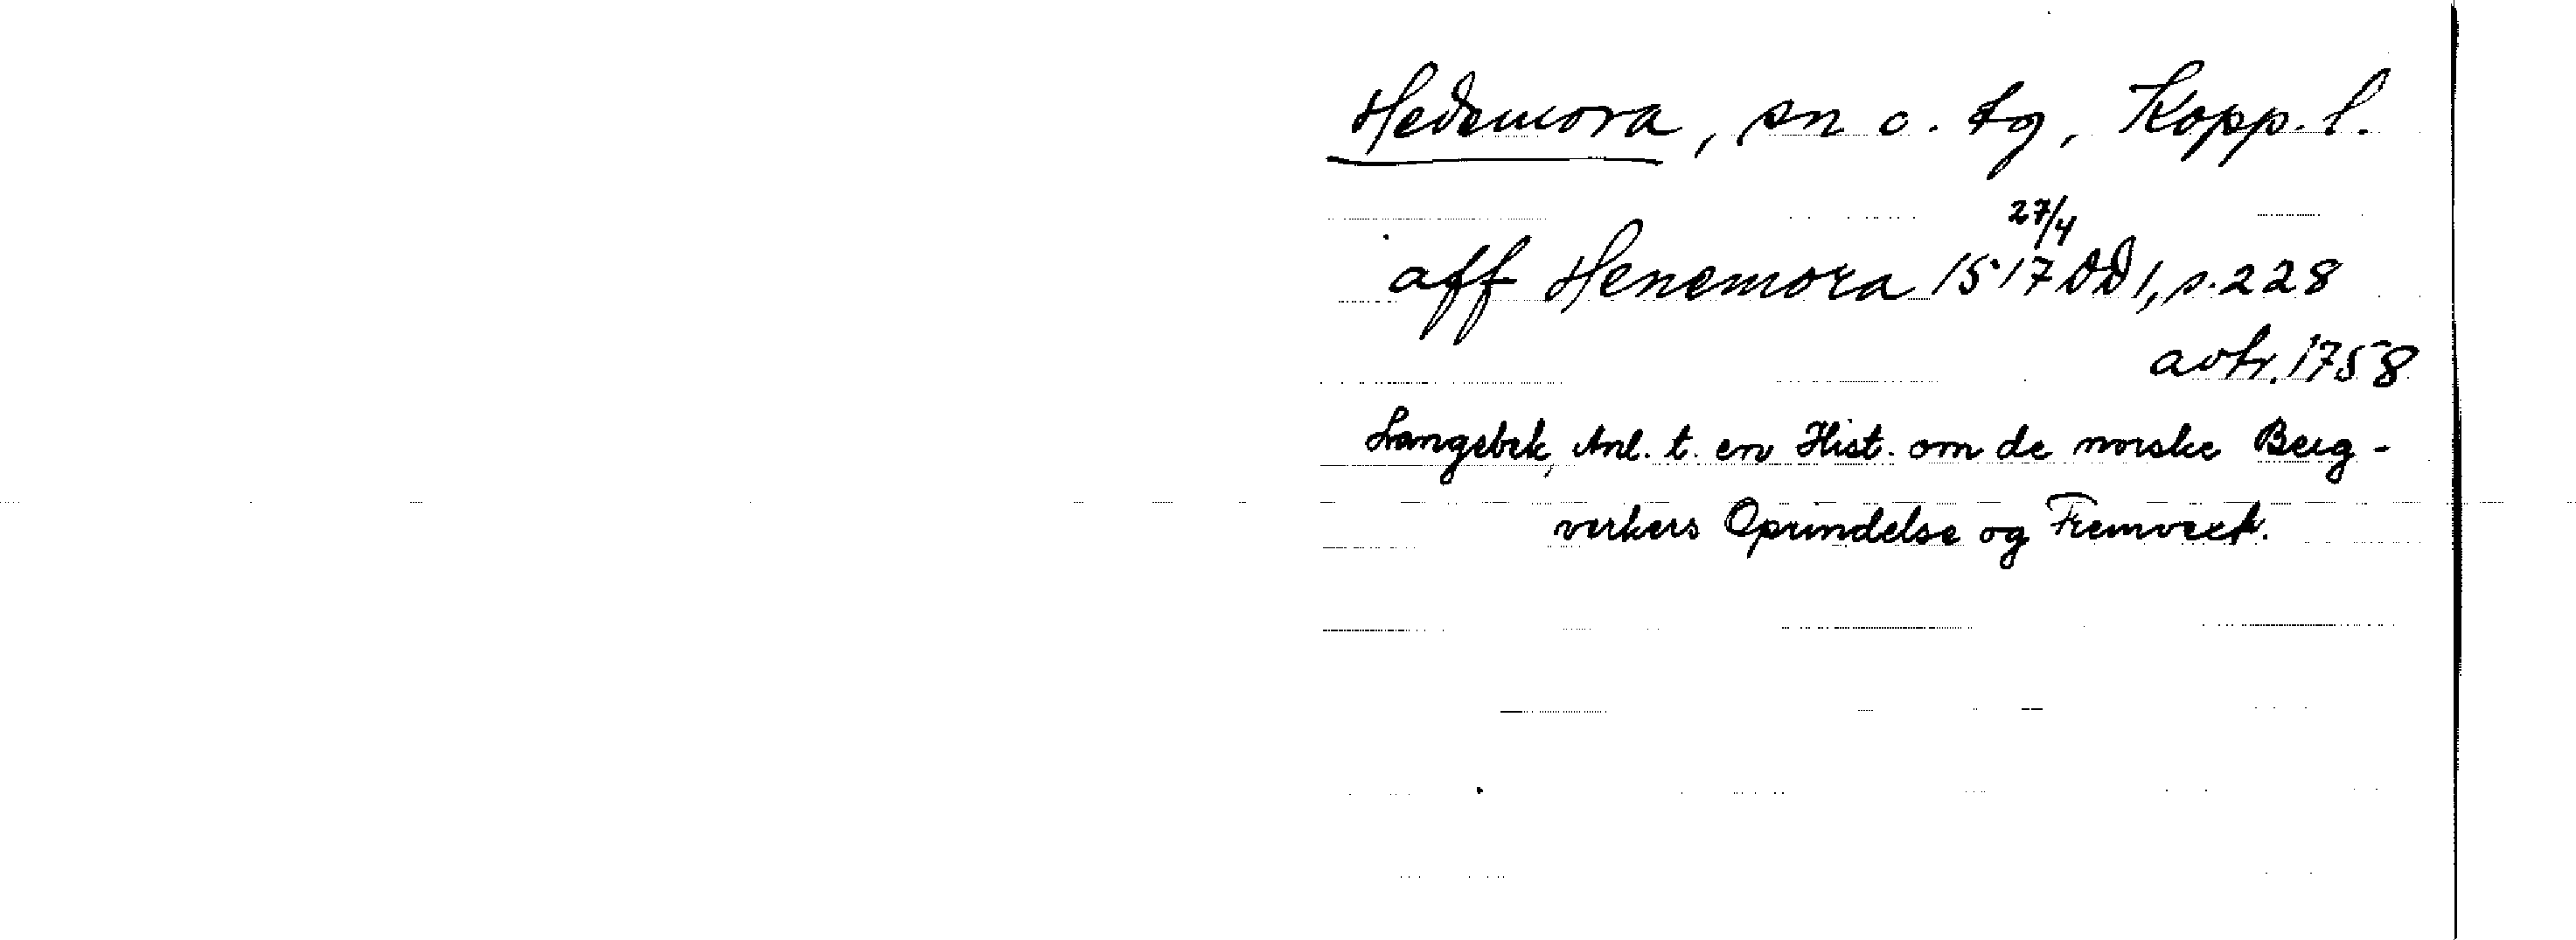 Hedemora, sn o. tg, Kopp. l.
27/4
aff Henemora 1517 DD 1, s. 228
avtr. 1758
Langebek, Anl. t. en Hist. om de norske Berg-
verkers Oprindelse og Fremvext.